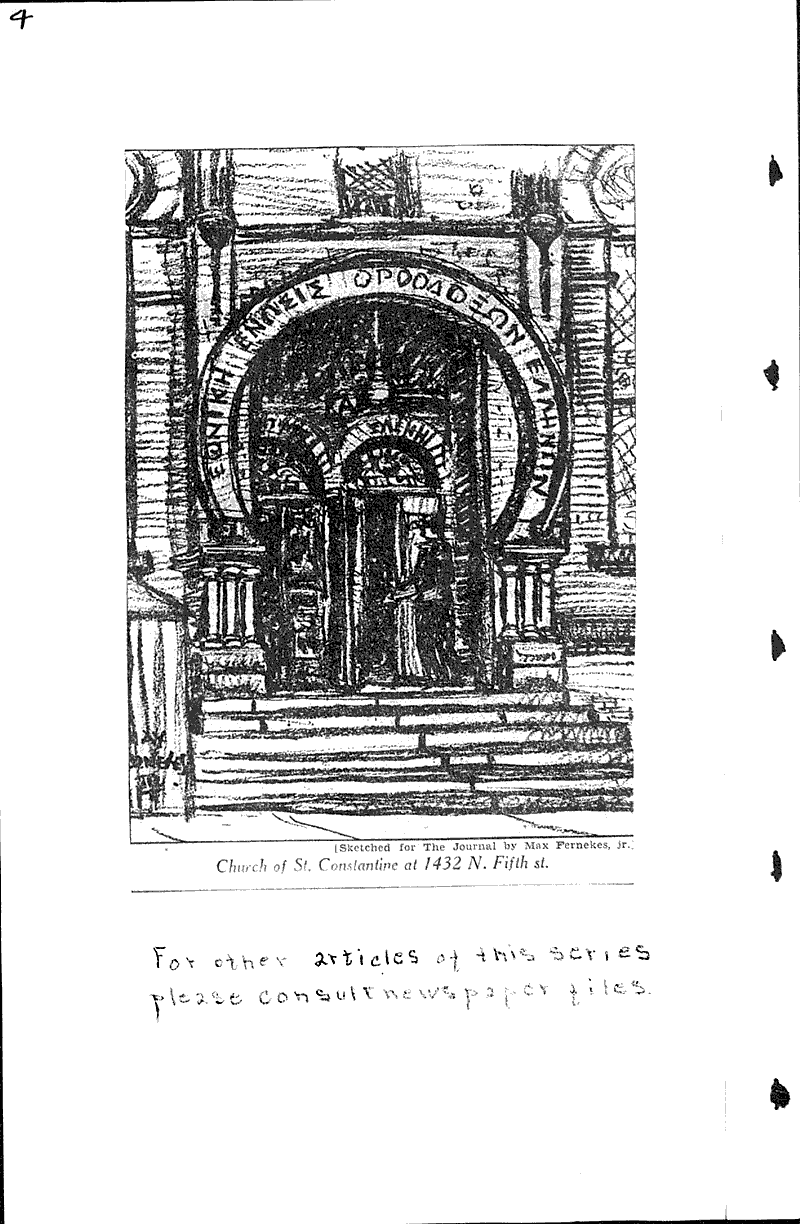 4
ΕΘΝΙΚΗ ΕΝΩΣΙΣ ΟΡΘΟΔΟΞΩΝ ΕΛΛΗΝΩΝ
[Sketched for The Journal by Max Fernekes, jr.]
Church of St. Constantine at 1432 N. Fifth st.
For other articles of this series
please consult newspaper files.